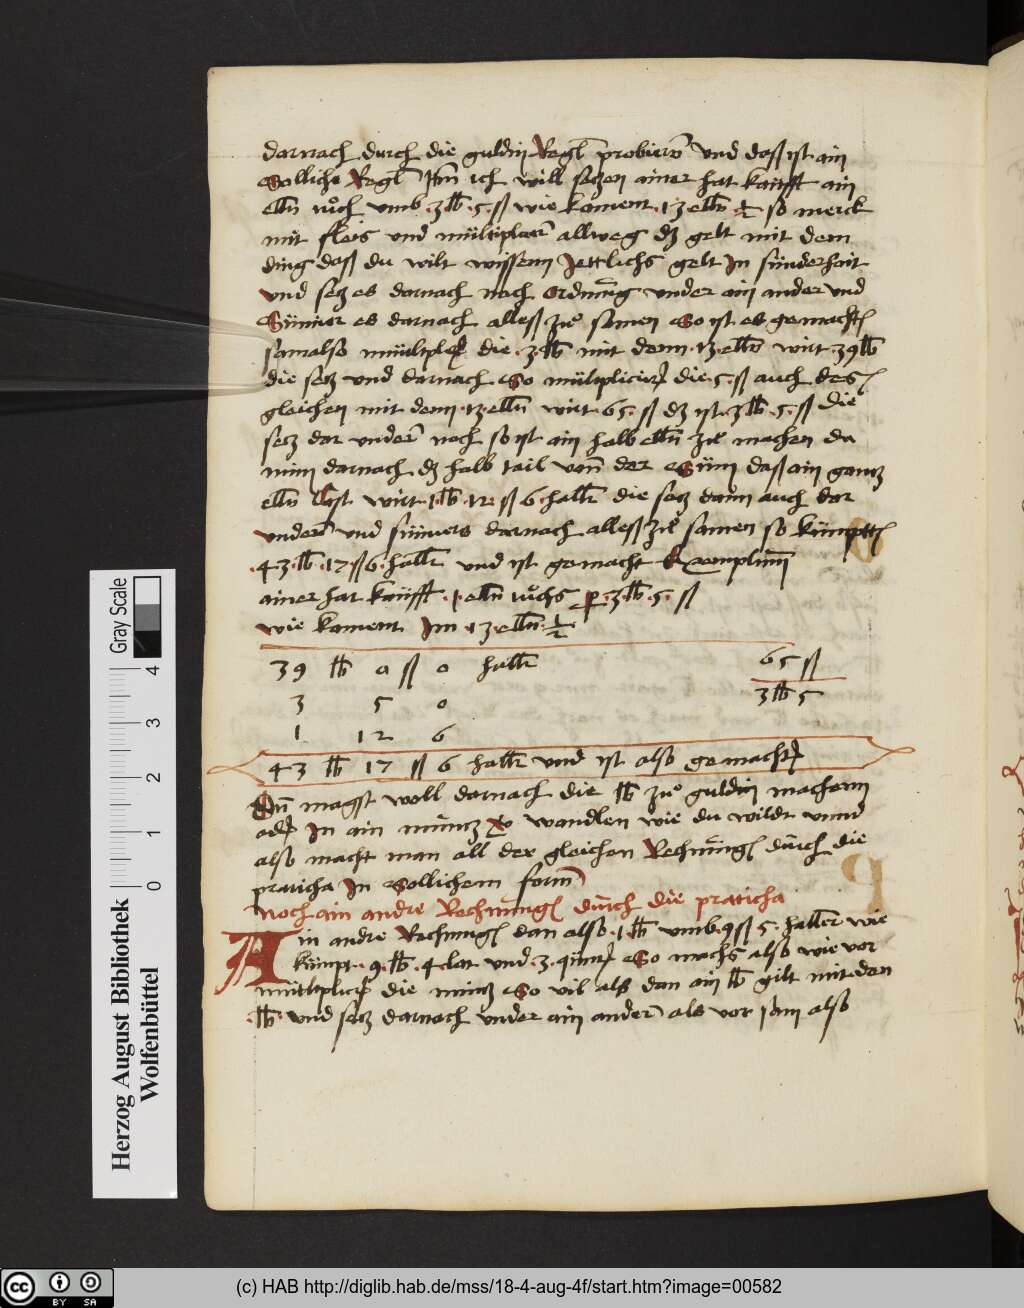 darnach durch die guldin Regl probiern vnd daß ist ain
Solliche Regl Itm ich will seczen ainer hat kaufft ain
elln tuͦch vmb .3 lb .5. ß wie koment .13 elln ½ so merck
mit fleis vnd multiplicir allweg dz gelt mit dem
ding daß du wilt wissenn Jettlichs gelt In sunderhait
vnd secz es darnach nach ordnung vnder ain ander vnd
Sumier es darnach alleß zuͦ samen So ist es gemacht
sam also multiplicir die .3 lb mit denn .13. elln wirt .39 lb
die secz vnd darnach So multiplicir die .5. ß auch des
gleichen mit denn .13. elln wirt .65. ß dz ist .3 lb .5. ß die
secz dar vnder noch so ist ain halb elln zuͦ machen da
nim darnach dz halb tail vonn der Sum daß ain gancz
elln Cost wirt .1 lb .12 ß 6 hallr die secz dann auch dar
vndern vnd sumers darnach alleß zuͦ samen so kumptt
.43. lb .17 ß 6. hallr vnd ist gemacht Exemplum
ainer hat kaufft .1. elln tuͦchs per .3. lb .5. ß
wie koment Im .13. elln ½
39 lb 0 ß 0 hallr
65 ß
3 lb 5
3 5 0
1 12 6
43 lb 17 ß 6 hallr vnd ist also gemacht
Nun magst woll darnach die lb zuͦ guldin machenn
oder In ain muncz wandlen wie du wildt vnnd
also macht man all der gleichen Rechnung durch die
praticha In Sollichem form
Noch ain andre Rechnung durch die praticha
Ain andre Rechnung dan also .1. lb vmb .9 ß 5. haller wie
kumpt .9. lb .4 lot vnd .3. quint So machs also wie vor
multiplicir die muncz So vil als dan ain lb gilt mit den
.lb. vnd secz darnach vnder ain ander als vor sam also
Gray Scale
4 3 2 1 0
Herzog August Bibliothek
Wolfenbüttel
cc BY SA
(c) HAB http://diglib.hab.de/mss/18-4-aug-4f/start.htm?image=00582